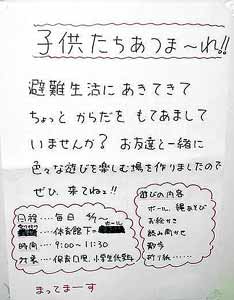 子供たちあつま〜れ!!
避難生活にあきてきて
ちょっと からだを もてあまして
いませんか? お友達と一緒に
色々な遊びを楽しむ場を作りましたので
ぜひ、来てねっ!!
日程…毎日 4/
保育館下の
ホール
時間…9:00〜11:30
対象…小学生低学年
遊びの内容
ボール、縄あそび
お絵かき
読み聞かせ
折り紙……
まってまーす